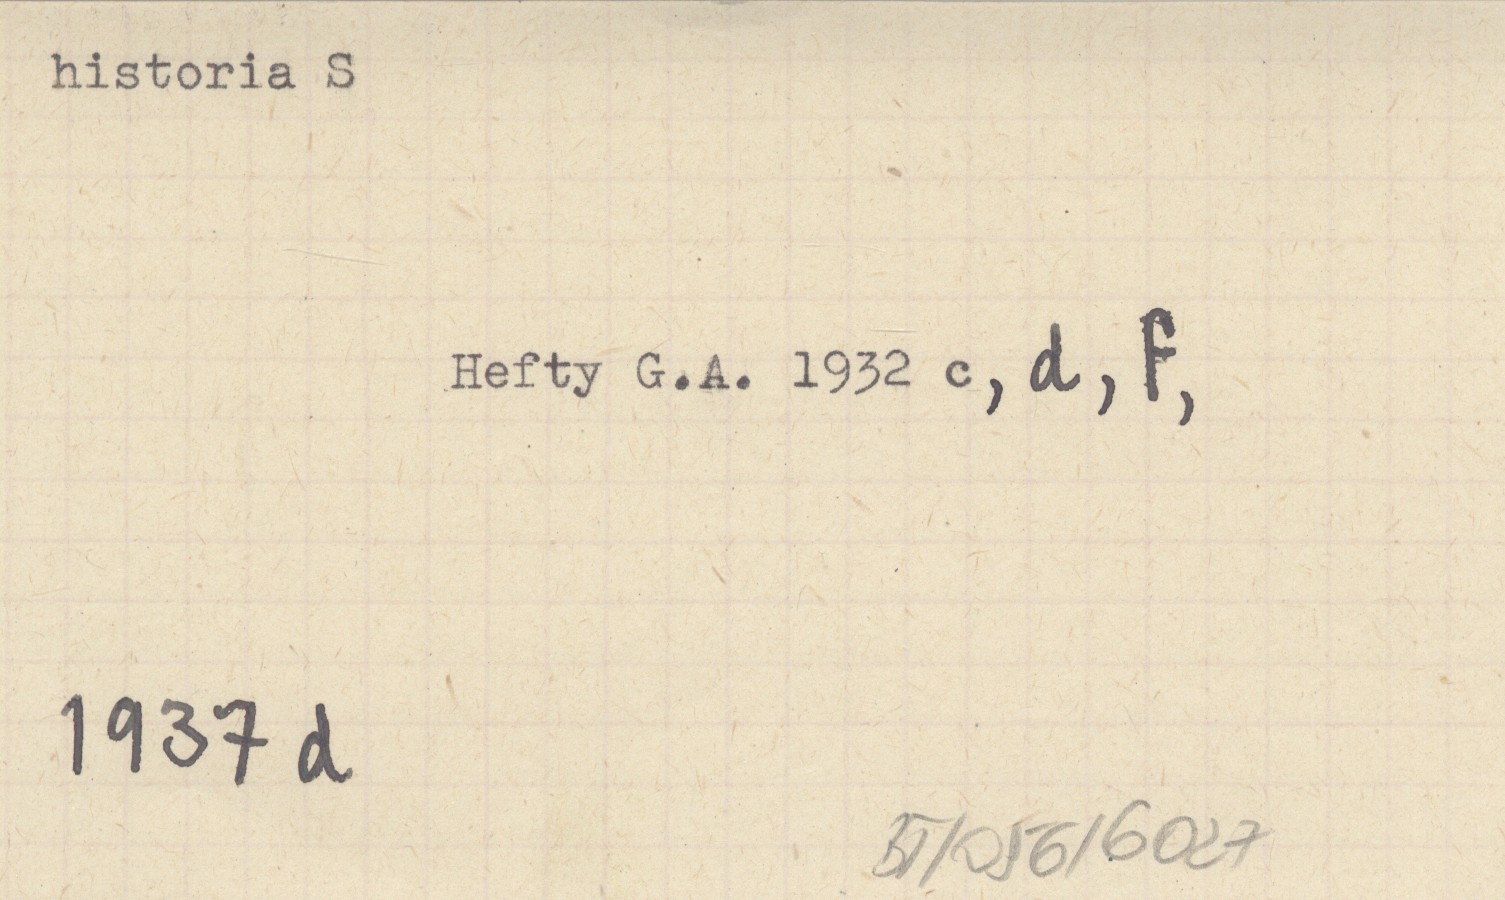 historia S
Hefty G.A. 1932 c, d, f,
1937 d
BT/056/6027